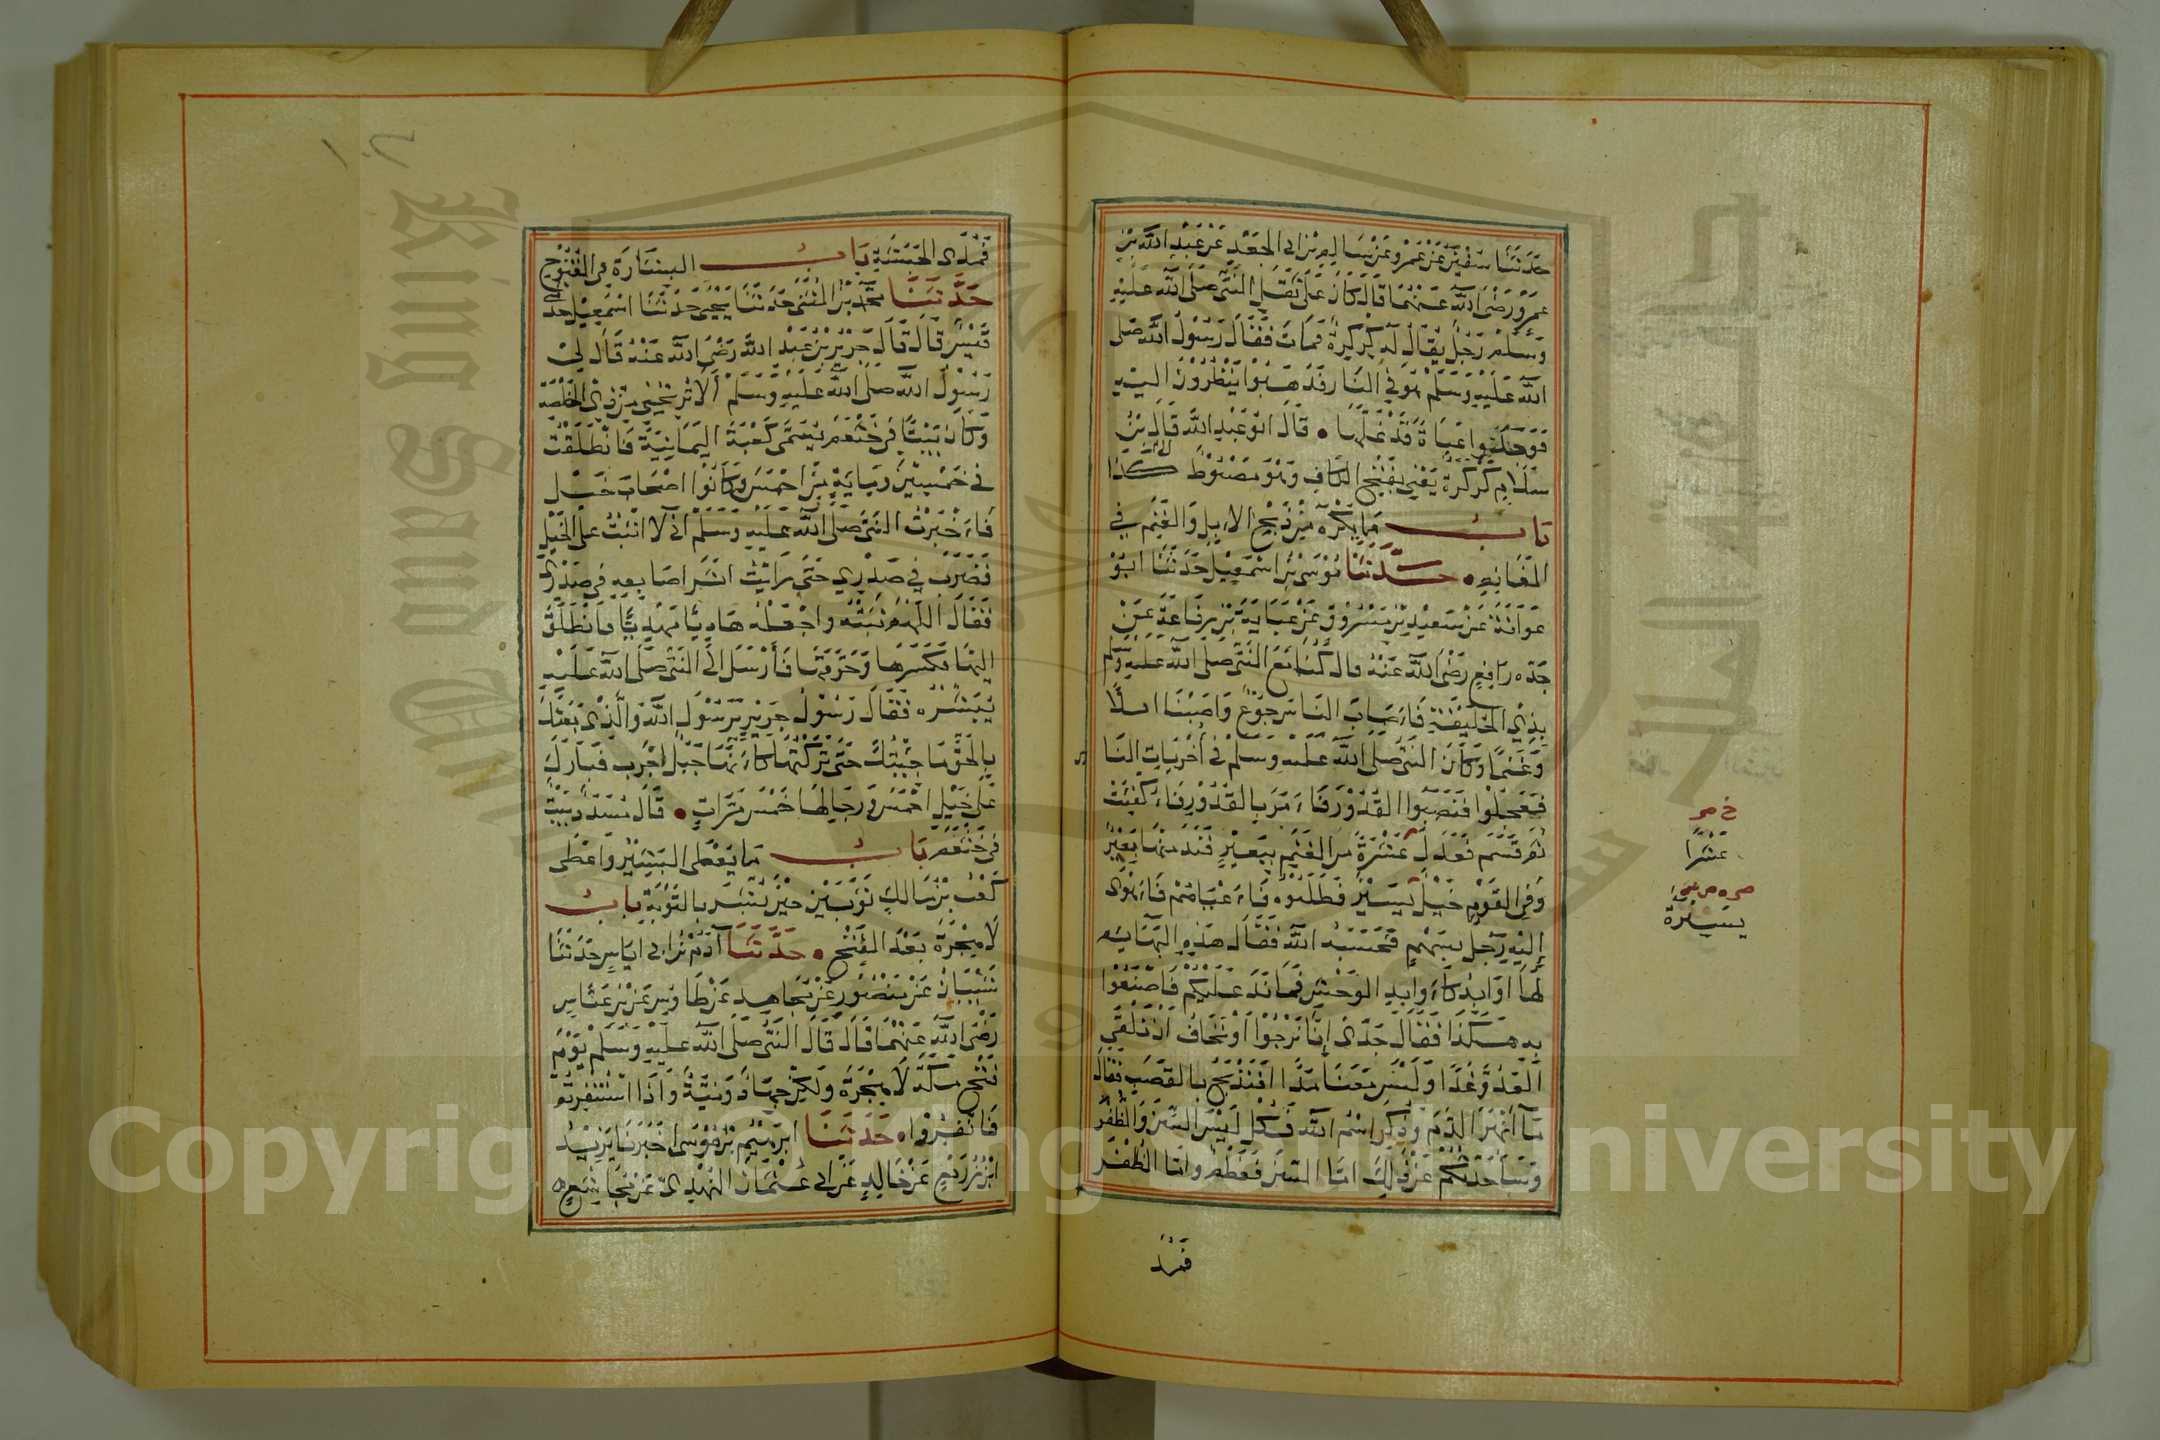 حدثنا سفين عن عمرو عن سالم بن ابي الجعد عن عبد الله بن
عمرو رضى الله عنهما قال كان على ثقل النبى صلى الله عليه
وسلم رجل يقال له كركرة فمات فقال رسول الله صلى
الله عليه وسلم هو فى النار فذهبوا ينظرون اليه
فوجدوا عباءة قد غلها • قال ابو عبد الله قال ابن
سلام كركرة يعنى بفتح الكاف وهو مضبوط كذا
باب ما يكره من ذبح الابل والغنم في
المغانم • حدثنا موسى بن اسمعيل حدثنا ابو
عوانة عن سعيد بن مسروق عن عباية بن رفاعة عن
جده رافع رضى الله عنه قال كنا مع النبى صلى الله عليه وسلم
بذى الحليفة فاصاب الناس جوع واصبنا ابلا
وغنما وكان النبى صلى الله عليه وسلم فى اخريات النا
فعجلوا فنصبوا القدور فامر بالقدور فاكفئت
ثم قسم فعدل عشرة من الغنم ببعير فند منها بعير
وفى القوم خيل يسير فطلبوه فاعياهم فاهوى
اليه رجل بسهم فحبسه الله فقال هذه البهايم
لها اوابد كاوابد الوحش فما ند عليكم فاصنعوا
به هكذا فقال جدى انا نرجوا او نخاف ان نلقى
العدو غدا وليس معنا مدا افنذبح بالقصب فقال
ما انهر الدم وذكر اسم الله فكل ليس السن والظفر
وساحدثكم عن ذلك اما السن فعظم واما الظفر
فمد
خ صر
عشرا
يسيرة
فمدى الحبشة باب البشارة فى الفتوح
حدثنا محمد بن المثنى حدثنا يحيى حدثنا اسمعيل حد
قيس قال قال جرير بن عبد الله رضى الله عنه قال لى
رسول الله صلى الله عليه وسلم الا تريحنى من ذى الخلصة
وكان بيتا فى خثعم يسمى كعبة اليمانية فانطلقت
فى خمسين وماية من احمس وكانوا اصحاب خيل
فاخبرت النبى صلى الله عليه وسلم انى لا اثبت على الخيل
فضرب فى صدرى حتى رايت اثر اصابعه فى صدرى
فقال اللهم ثبته واجعله هاديا مهديا فانطلق
اليها فكسرها وحرقها فارسل الى النبى صلى الله عليه
يبشره فقال رسول جرير يرسول الله والذى بعثك
بالحق ما جئتك حتى تركتها كانها جمل اجرب فبارك
على خيل احمس ورجالها خمس مرات • قال مسدد بيت
فى خثعم باب ما يعطى البشير واعطى
كعب بن مالك ثوبين حين بشر بالتوبة باب
لا هجرة بعد الفتح • حدثنا آدم بن ابى اياس حدثنا
شيبان عن منصور عن مجاهد عن طاوس عن بن عباس
رضى الله عنهما قال قال النبى صلى الله عليه وسلم يوم
فتح مكة لا هجرة ولكن جهاد ونية واذا استنفرتم
فانفروا • حدثنا ابرهيم بن موسى اخبرنا يزيد
ابن زريع عن خالد عن ابى عثمان النهدى عن مجاشع
King Saud University
Copyright © King Saud University